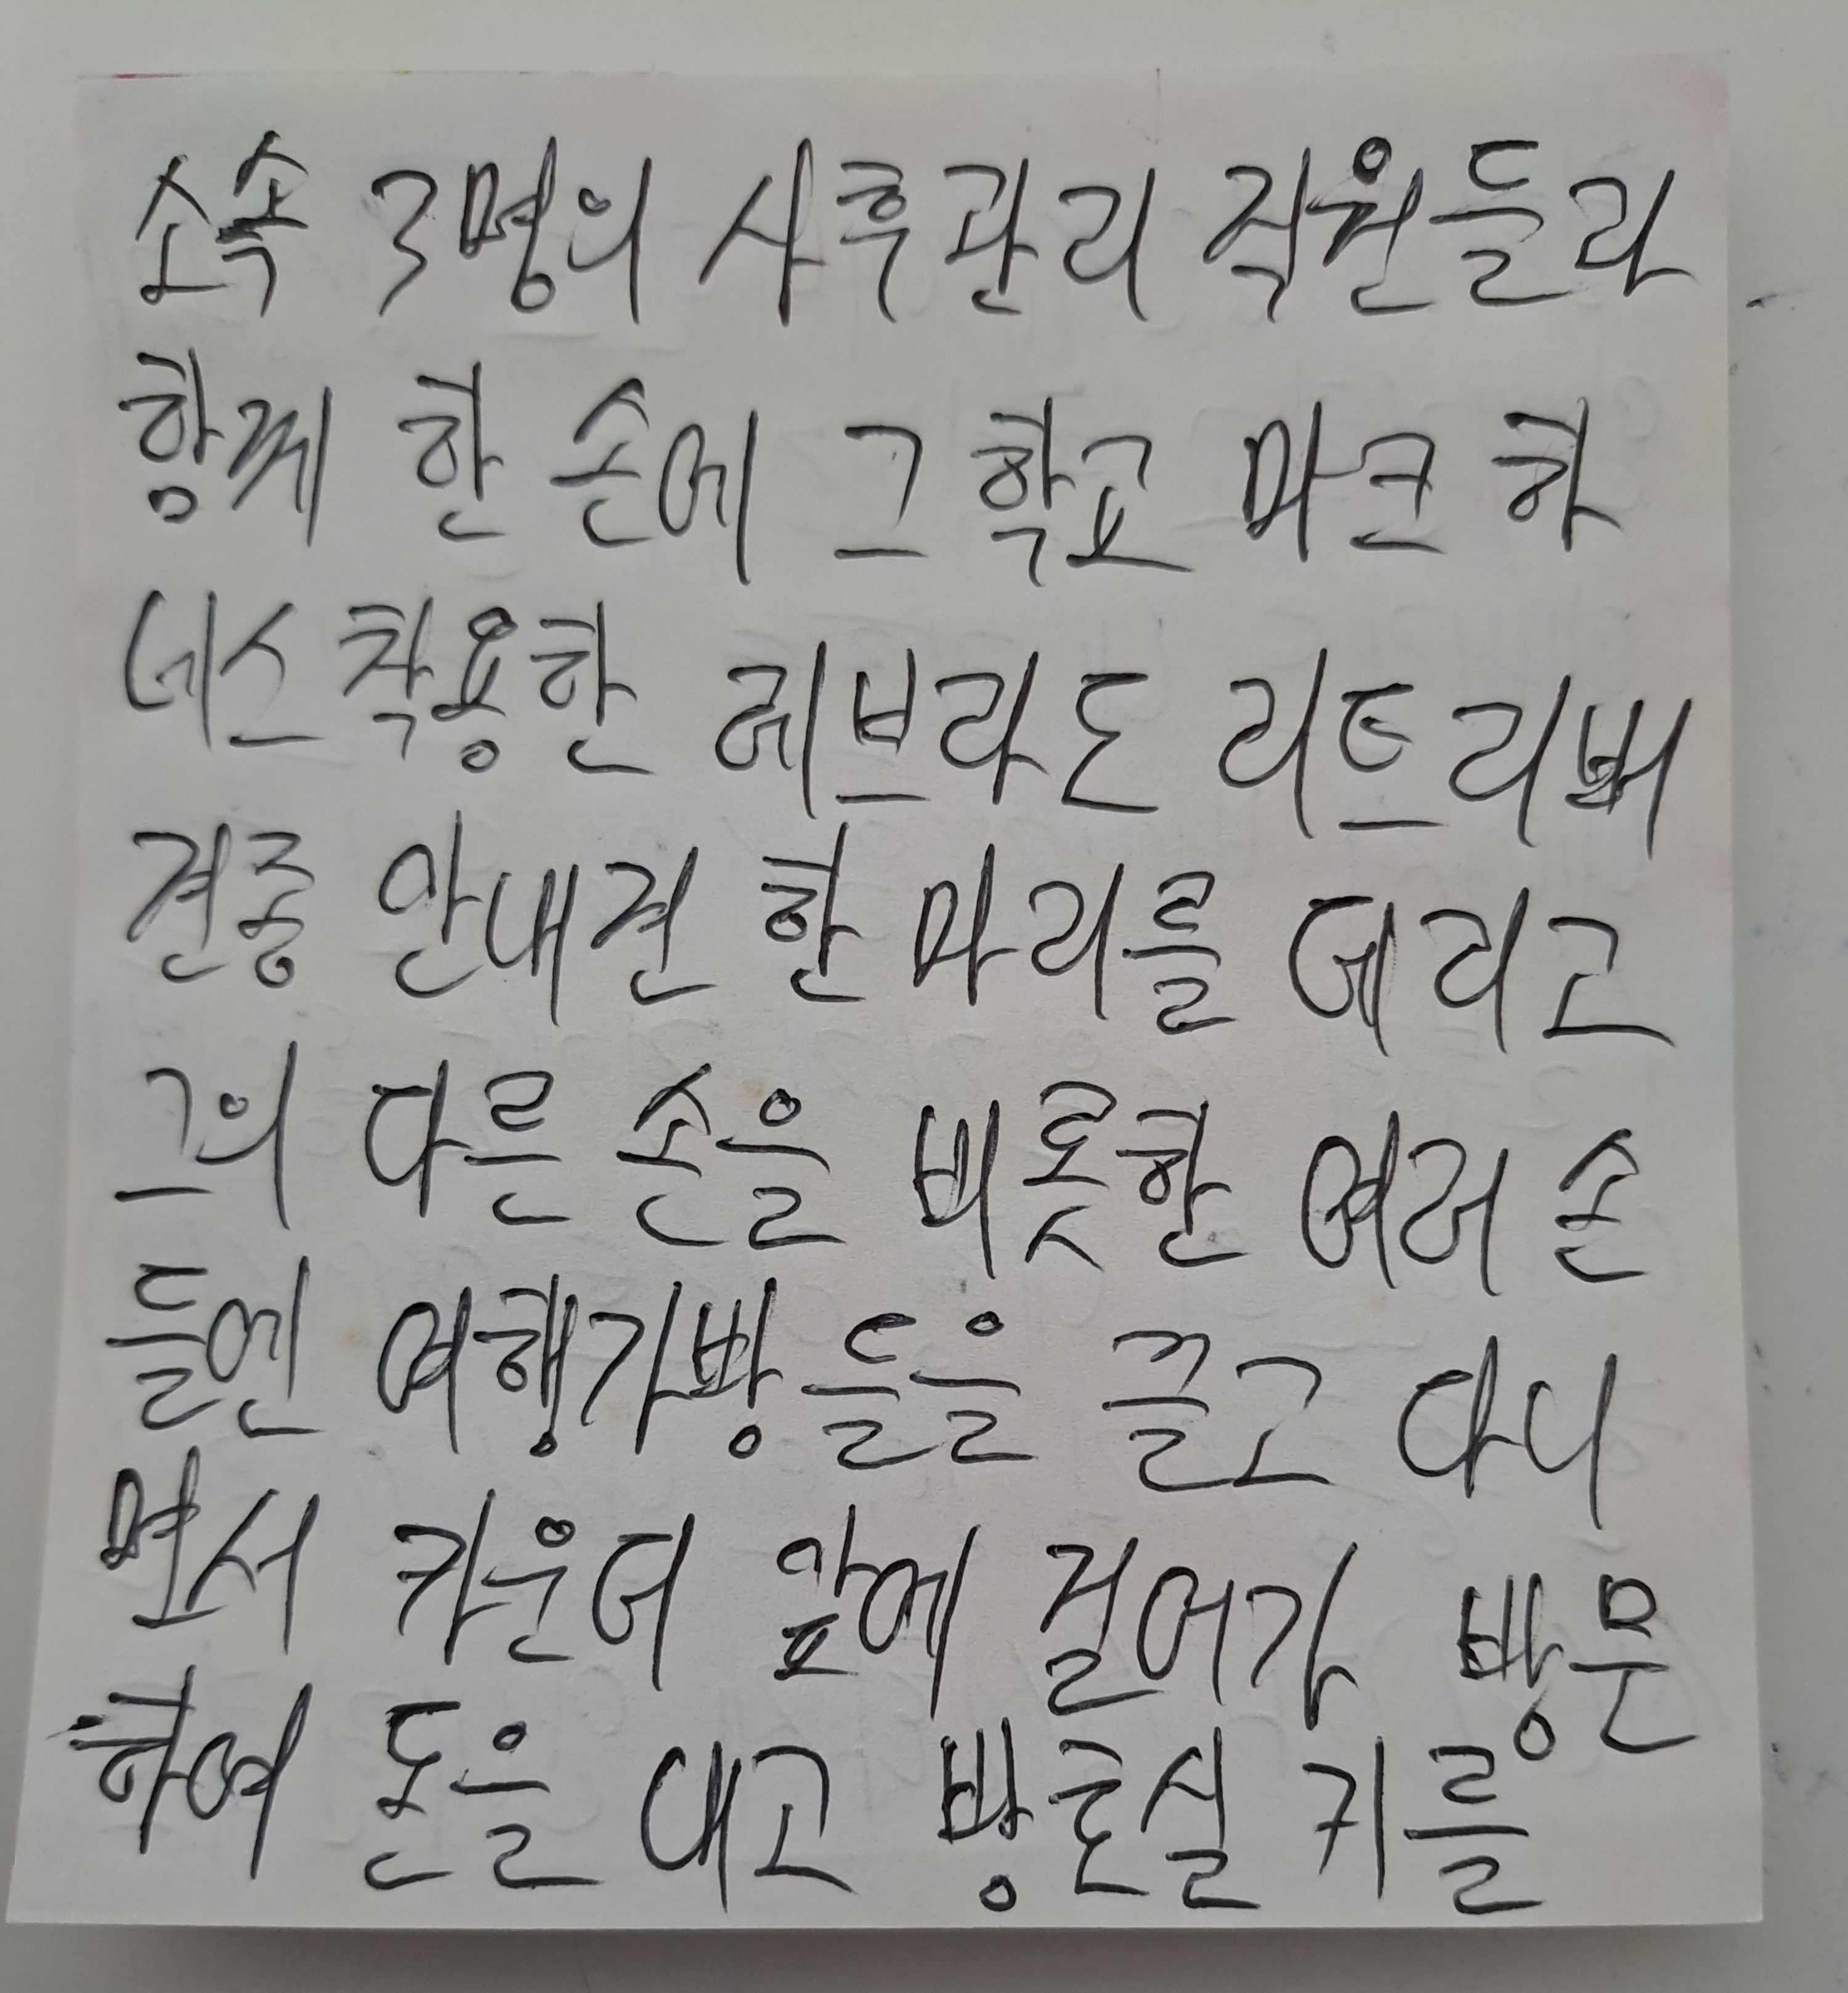 소속 3명의 사후관리 직원들과
함께 한 손에 그 학교 마크 하
네스 착용한 레브라도 리트리버
견종 안내견 한 마리를 데리고
그의 다른 손을 비롯한 여러 손
들엔 여행가방들을 끌고 다니
면서 카운터 앞에 걸어가 방문
하여 돈을 내고 방호실 키를